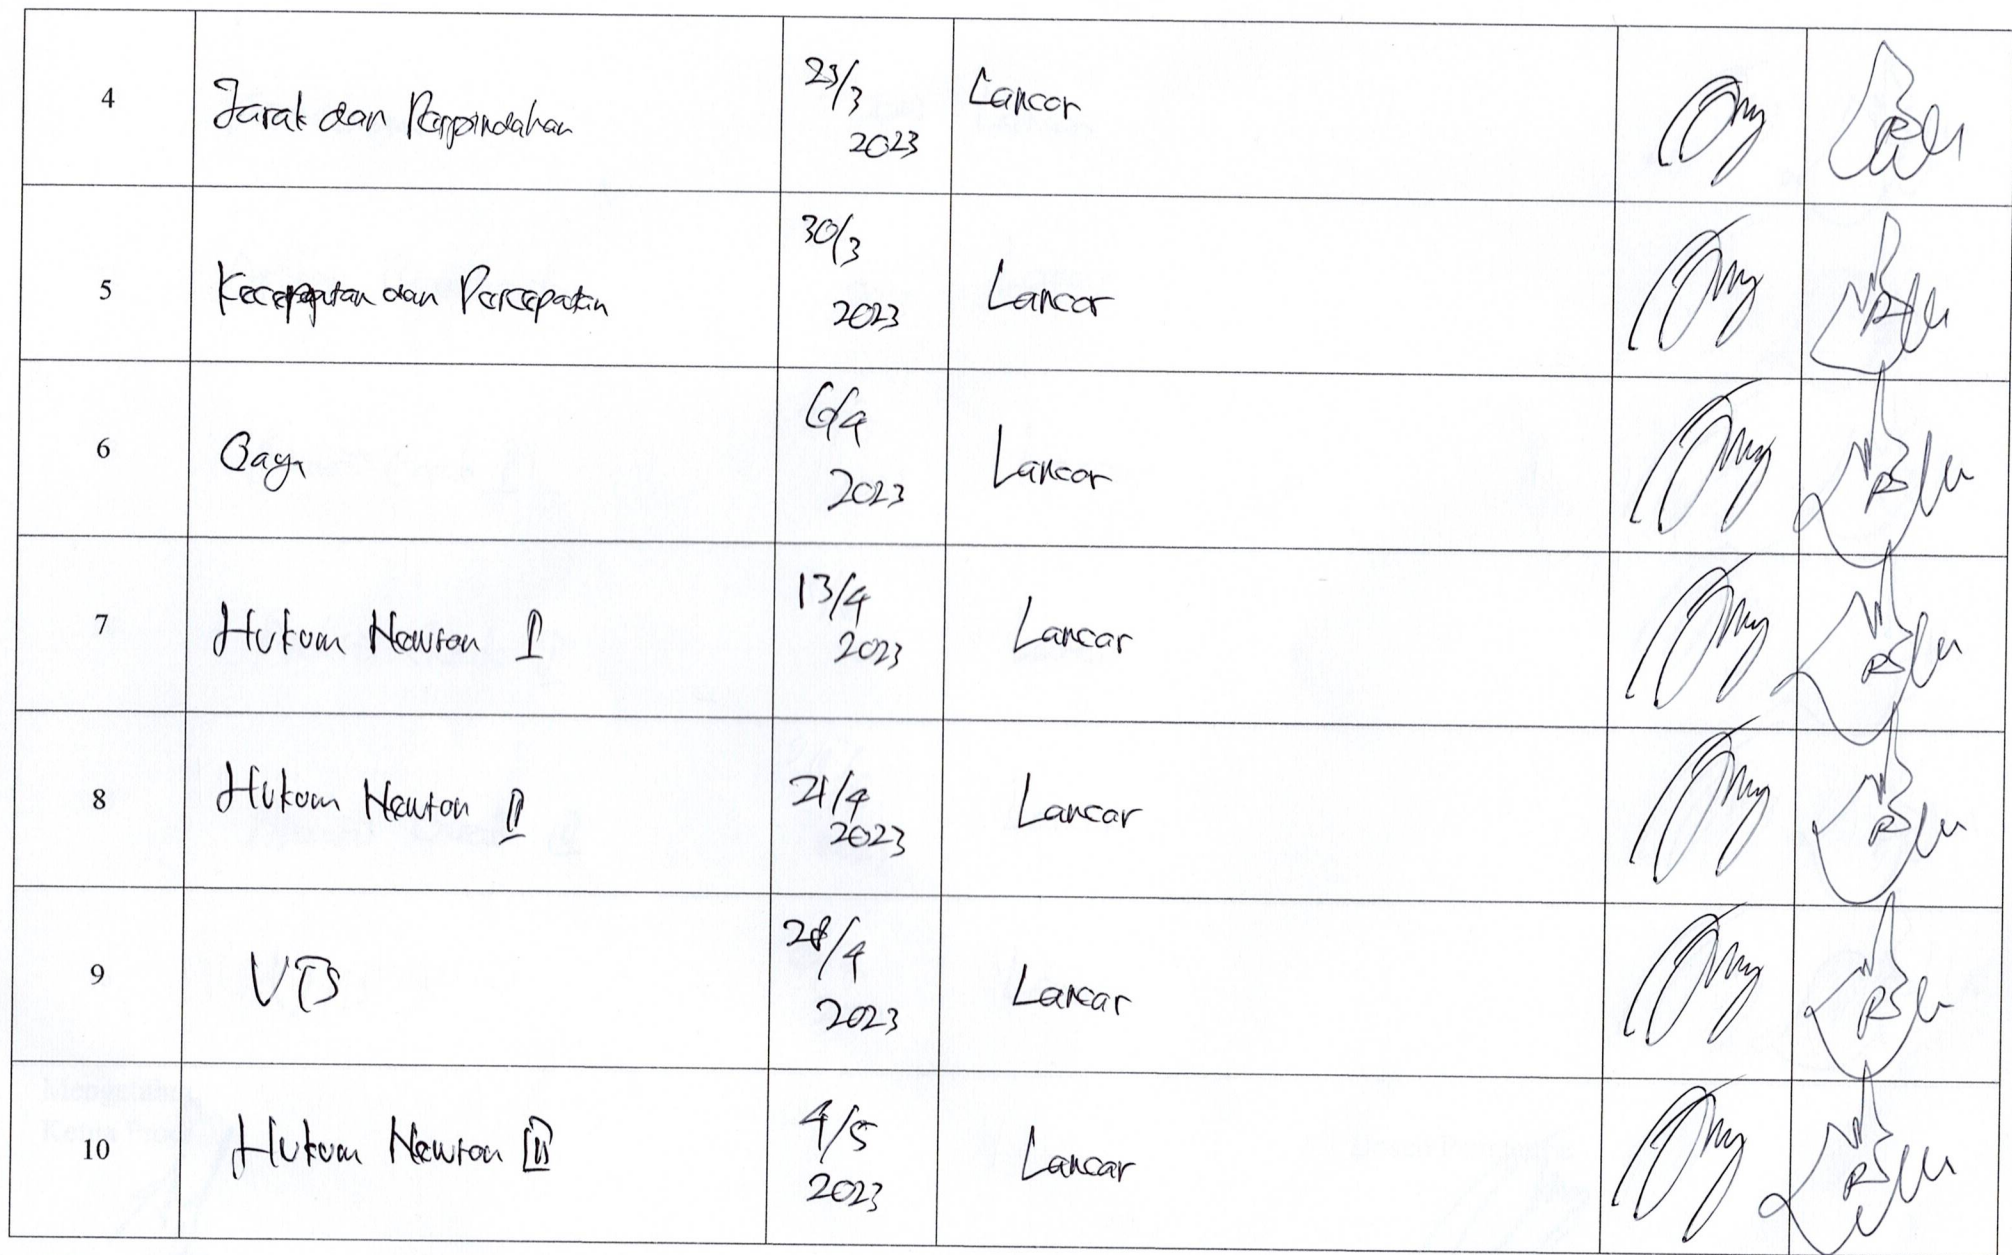 4 Jarak dan Perpindahan 23/3 2023 Lancar
5 Kecepatan dan Percepatan 30/3 2023 Lancar
6 Gaya 6/4 2023 Lancar
7 Hukum Newton I 13/4 2023 Lancar
8 Hukum Newton II 21/4 2023 Lancar
9 UTS 28/4 2023 Lancar
10 Hukum Newton III 4/5 2023 Lancar